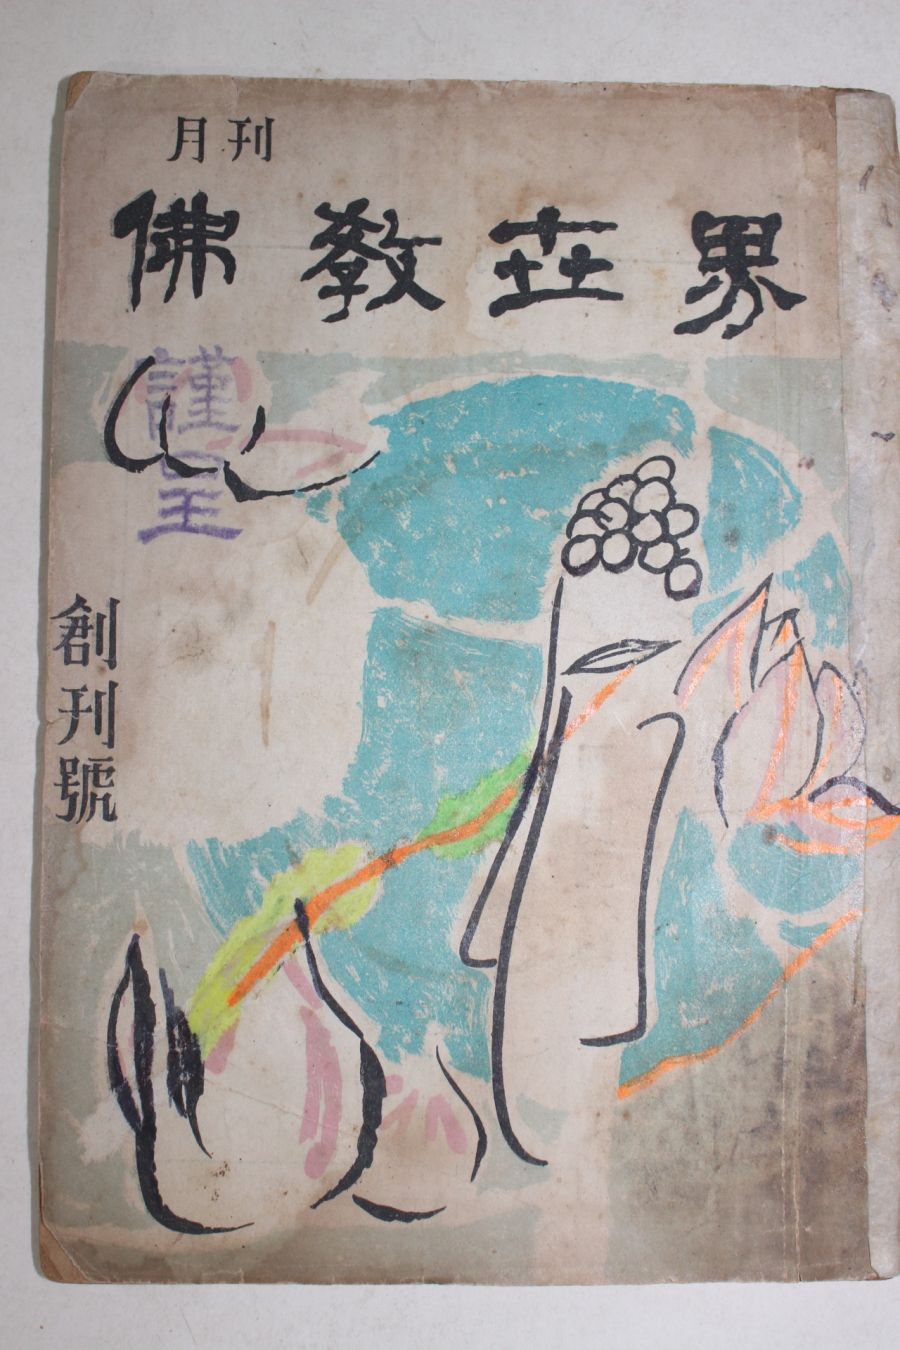 月刊
佛教世界
謹呈
創刊號